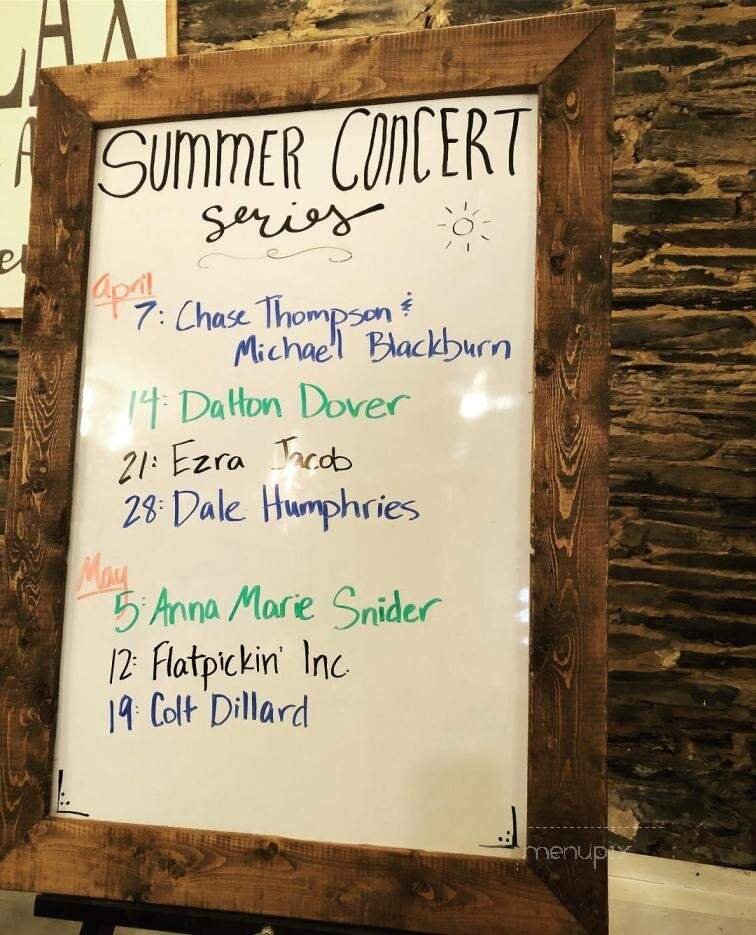 SUMMER CONCERT
series
April
7: Chase Thompson &
Michael Blackburn
14: Dalton Dover
21: Ezra Jacob
28: Dale Humphries
May
5: Anna Marie Snider
12: Flatpickin' Inc.
19: Colt Dillard
menupix